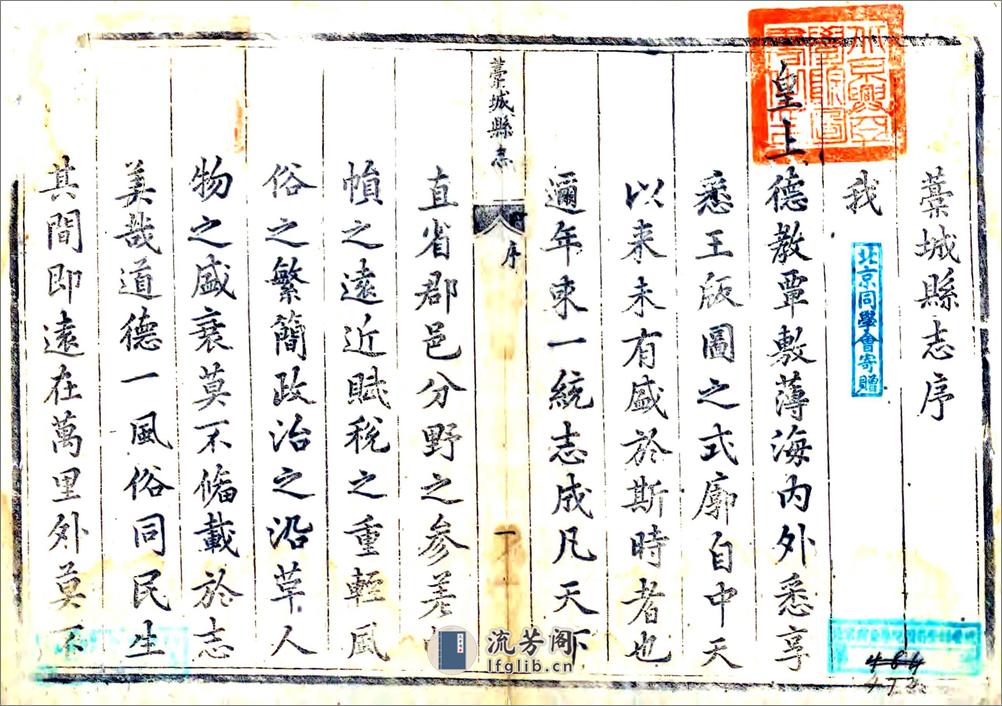 藁城縣志序
我
皇上德教覃敷薄海内外悉享
悉王版圖之式廓自中天
以来未有盛於斯時者也
邇年来一統志成凡天下
藁城縣志
序
一
直省郡邑分野之参差
幀之遠近賦稅之重輕風
俗之繁簡政治之沿革人
物之盛衰莫不備載於志
美哉道德一風俗同民生
其間即遠在萬里外莫不
北京同學會寄贈
流芳阁
lfglib.cn